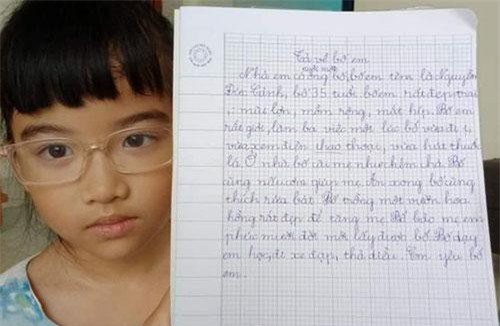 Tả về bố em
Nhà em có ông bố, bố em tên là Nguyễn
Đức Cảnh, bố 35 tuổi bố em rất đẹp trai
: mũi lớn, mồm rộng, mắt híp. Bố em
rất giỏi, làm ba việc một lúc bố vừa đi ị,
vừa xem điện thoại, vừa hút thuốc
lá. Ở nhà bố sợ mẹ như chém chả. Bố
cũng nấu cơm giúp mẹ. Ăn xong bố cũng
thích rửa bát. Bố trồng một vườn hoa
hồng rất đẹp để tặng mẹ. Bố bảo mẹ em
phúc mười đời mới lấy được bố. Bố dạy
em học, đi xe đạp, thả diều. Em yêu bố
em.